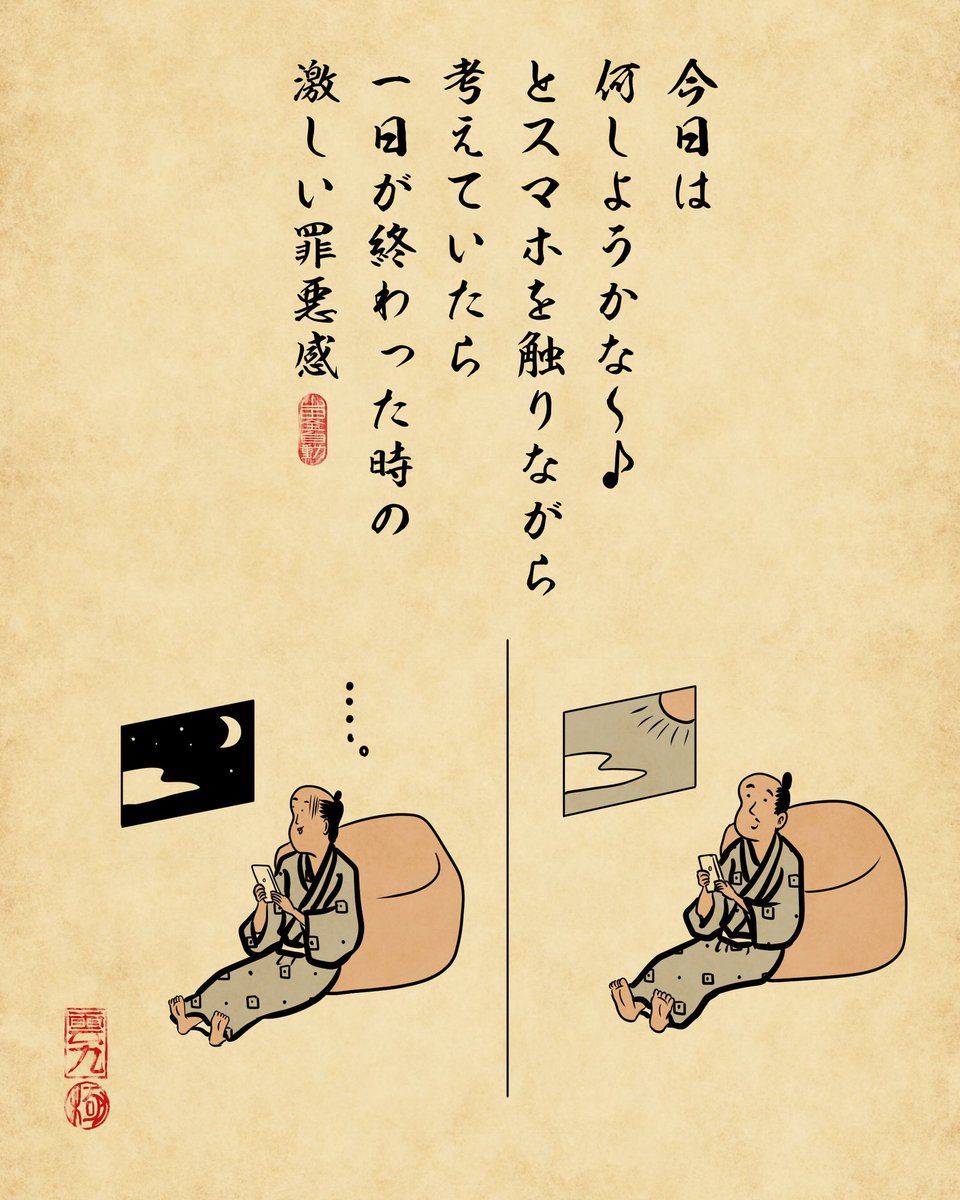 今日は
何しようかな〜♪
とスマホを触りながら
考えていたら
一日が終わった時の
激しい罪悪感
…。